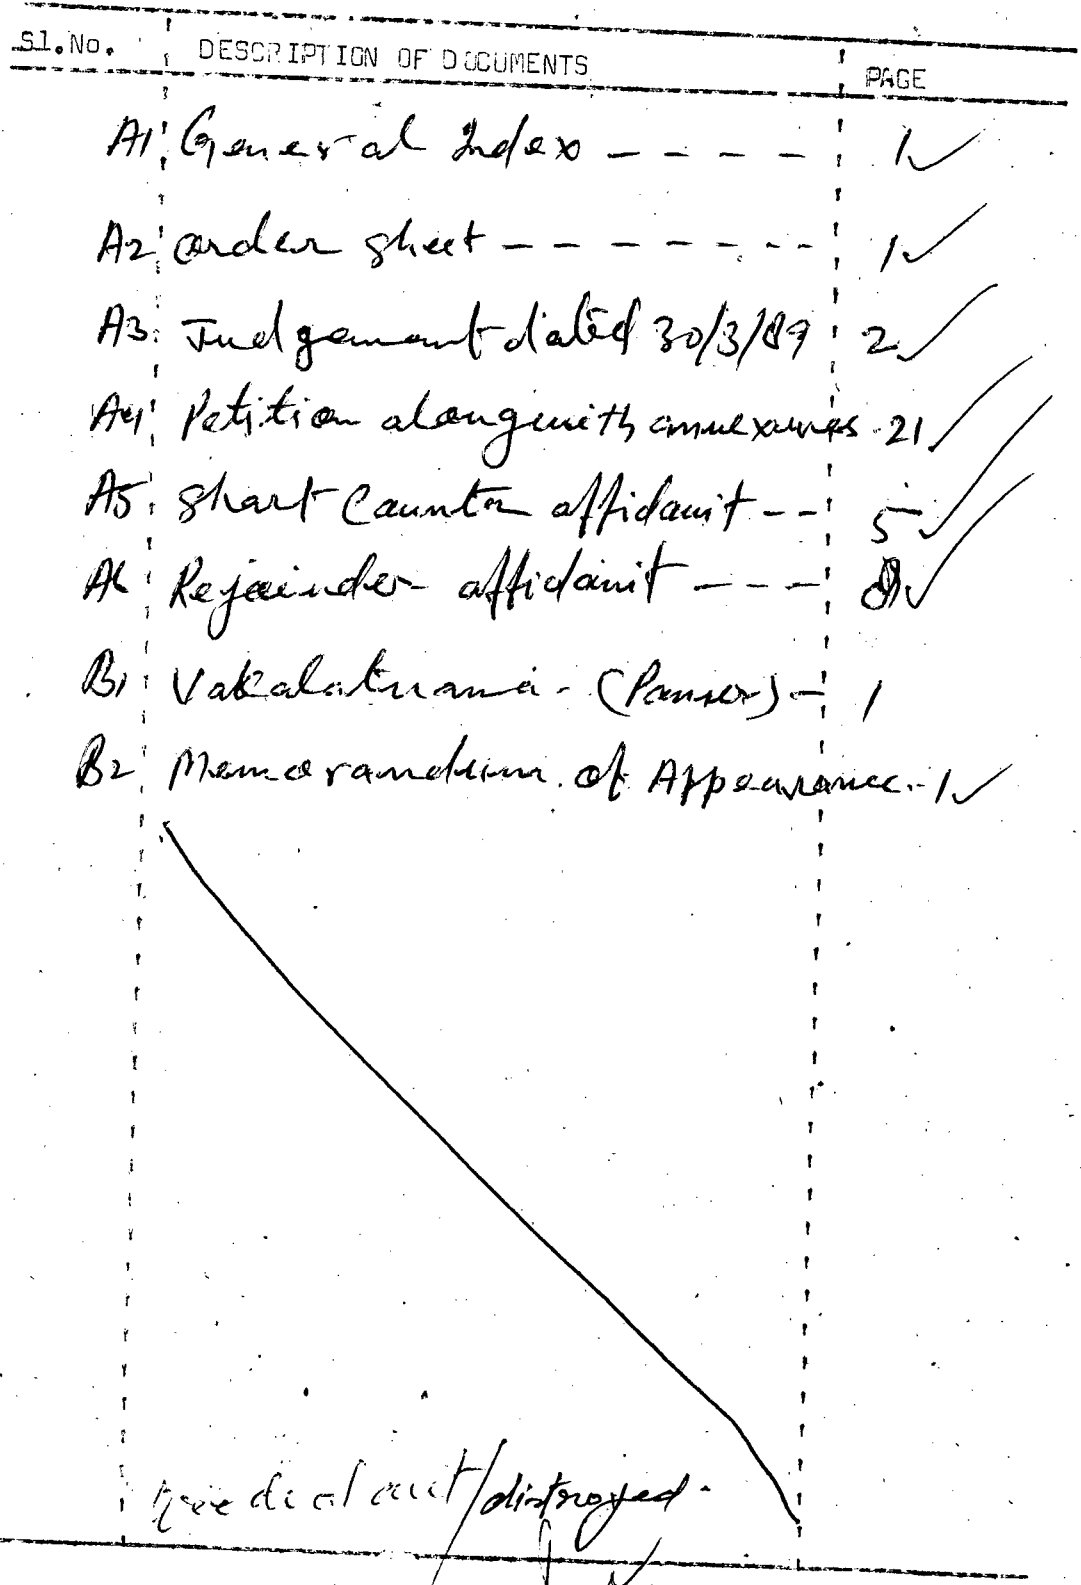 Sl.No. DESCRIPTION OF DOCUMENTS PAGE
A1 General Index - - - - 1 ✓
A2 order sheet - - - - - - - 1 ✓
A3 Judgement dated 30/3/89 2 ✓
A4 Petition alongwith annexures 21 ✓
A5 Short Counter affidavit - - 5 ✓
A6 Rejoinder affidavit - - - 8 ✓
B1 Vakalatnama - (Power) - 1
B2 Memorandum of Appearance - 1 ✓
out/distroyed.